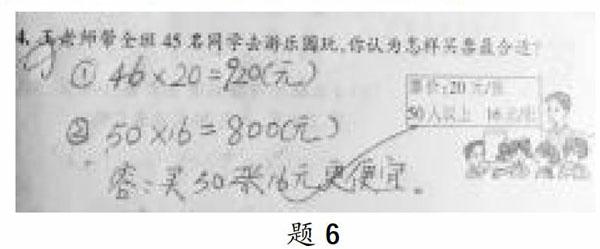 4. 王老师带全班 45 名同学去游乐园玩,你认为怎样买票最合适?
① 46×20=920(元)
票价:20 元/张
50 人以上 16 元/张
② 50×16=800(元)
答:买50张16元更便宜。
题 6